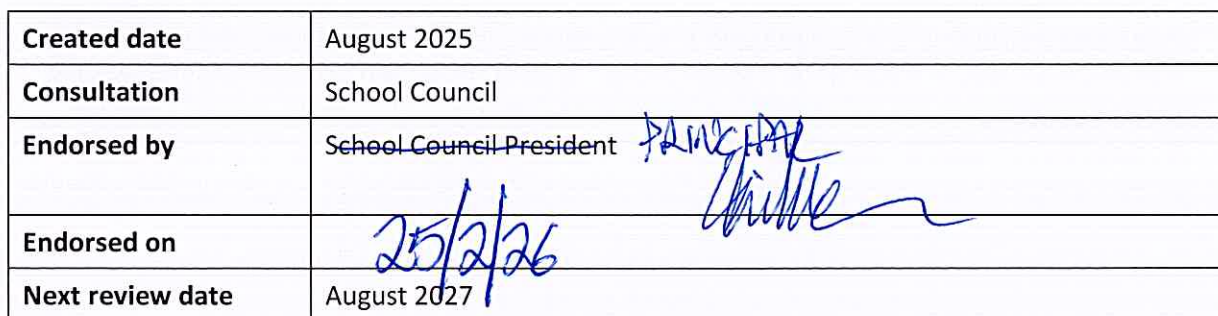 Created date August 2025
Consultation School Council
Endorsed by School Council President PRINCIPAL
Endorsed on 25/2/26
Next review date August 2027